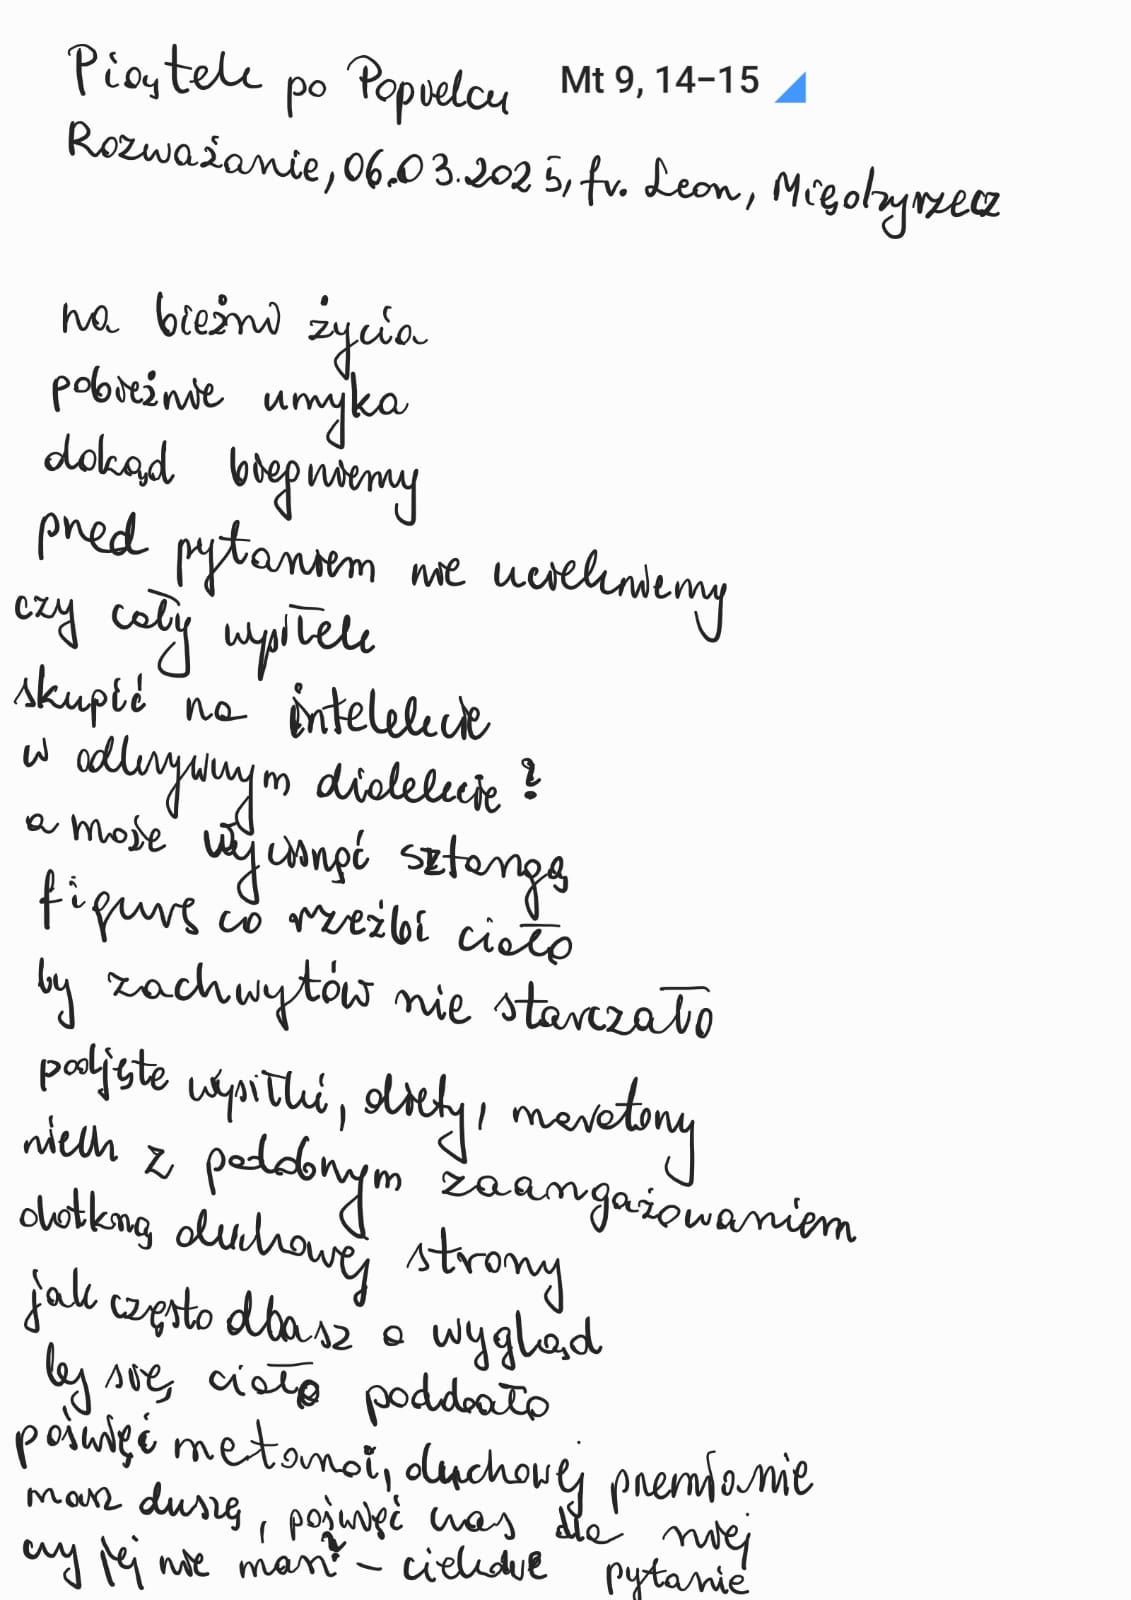 Piątek po Popielcu Mt 9, 14-15
Rozważanie, 06.03.2025, fr. Leon, Międzyrzecz
na bieżni życia
pobieżnie umyka
dokąd biegniemy
przed pytaniem nie uciekniemy
czy cały wysiłek
skupić na intelekcie
w odkrywczym dialekcie?
a może wycisnąć sztangą
figurę co rzeźbi ciało
by zachwytów nie starczało
podjęte wysiłki, diety, maratony
niech z podobnym zaangażowaniem
dotkną duchowej strony
jak często dbasz o wygląd
by się ciało poddało
poświęć metanoi, duchowej przemianie
masz duszę, poświęć czas dla niej
czy jej nie masz? - ciekawe pytanie